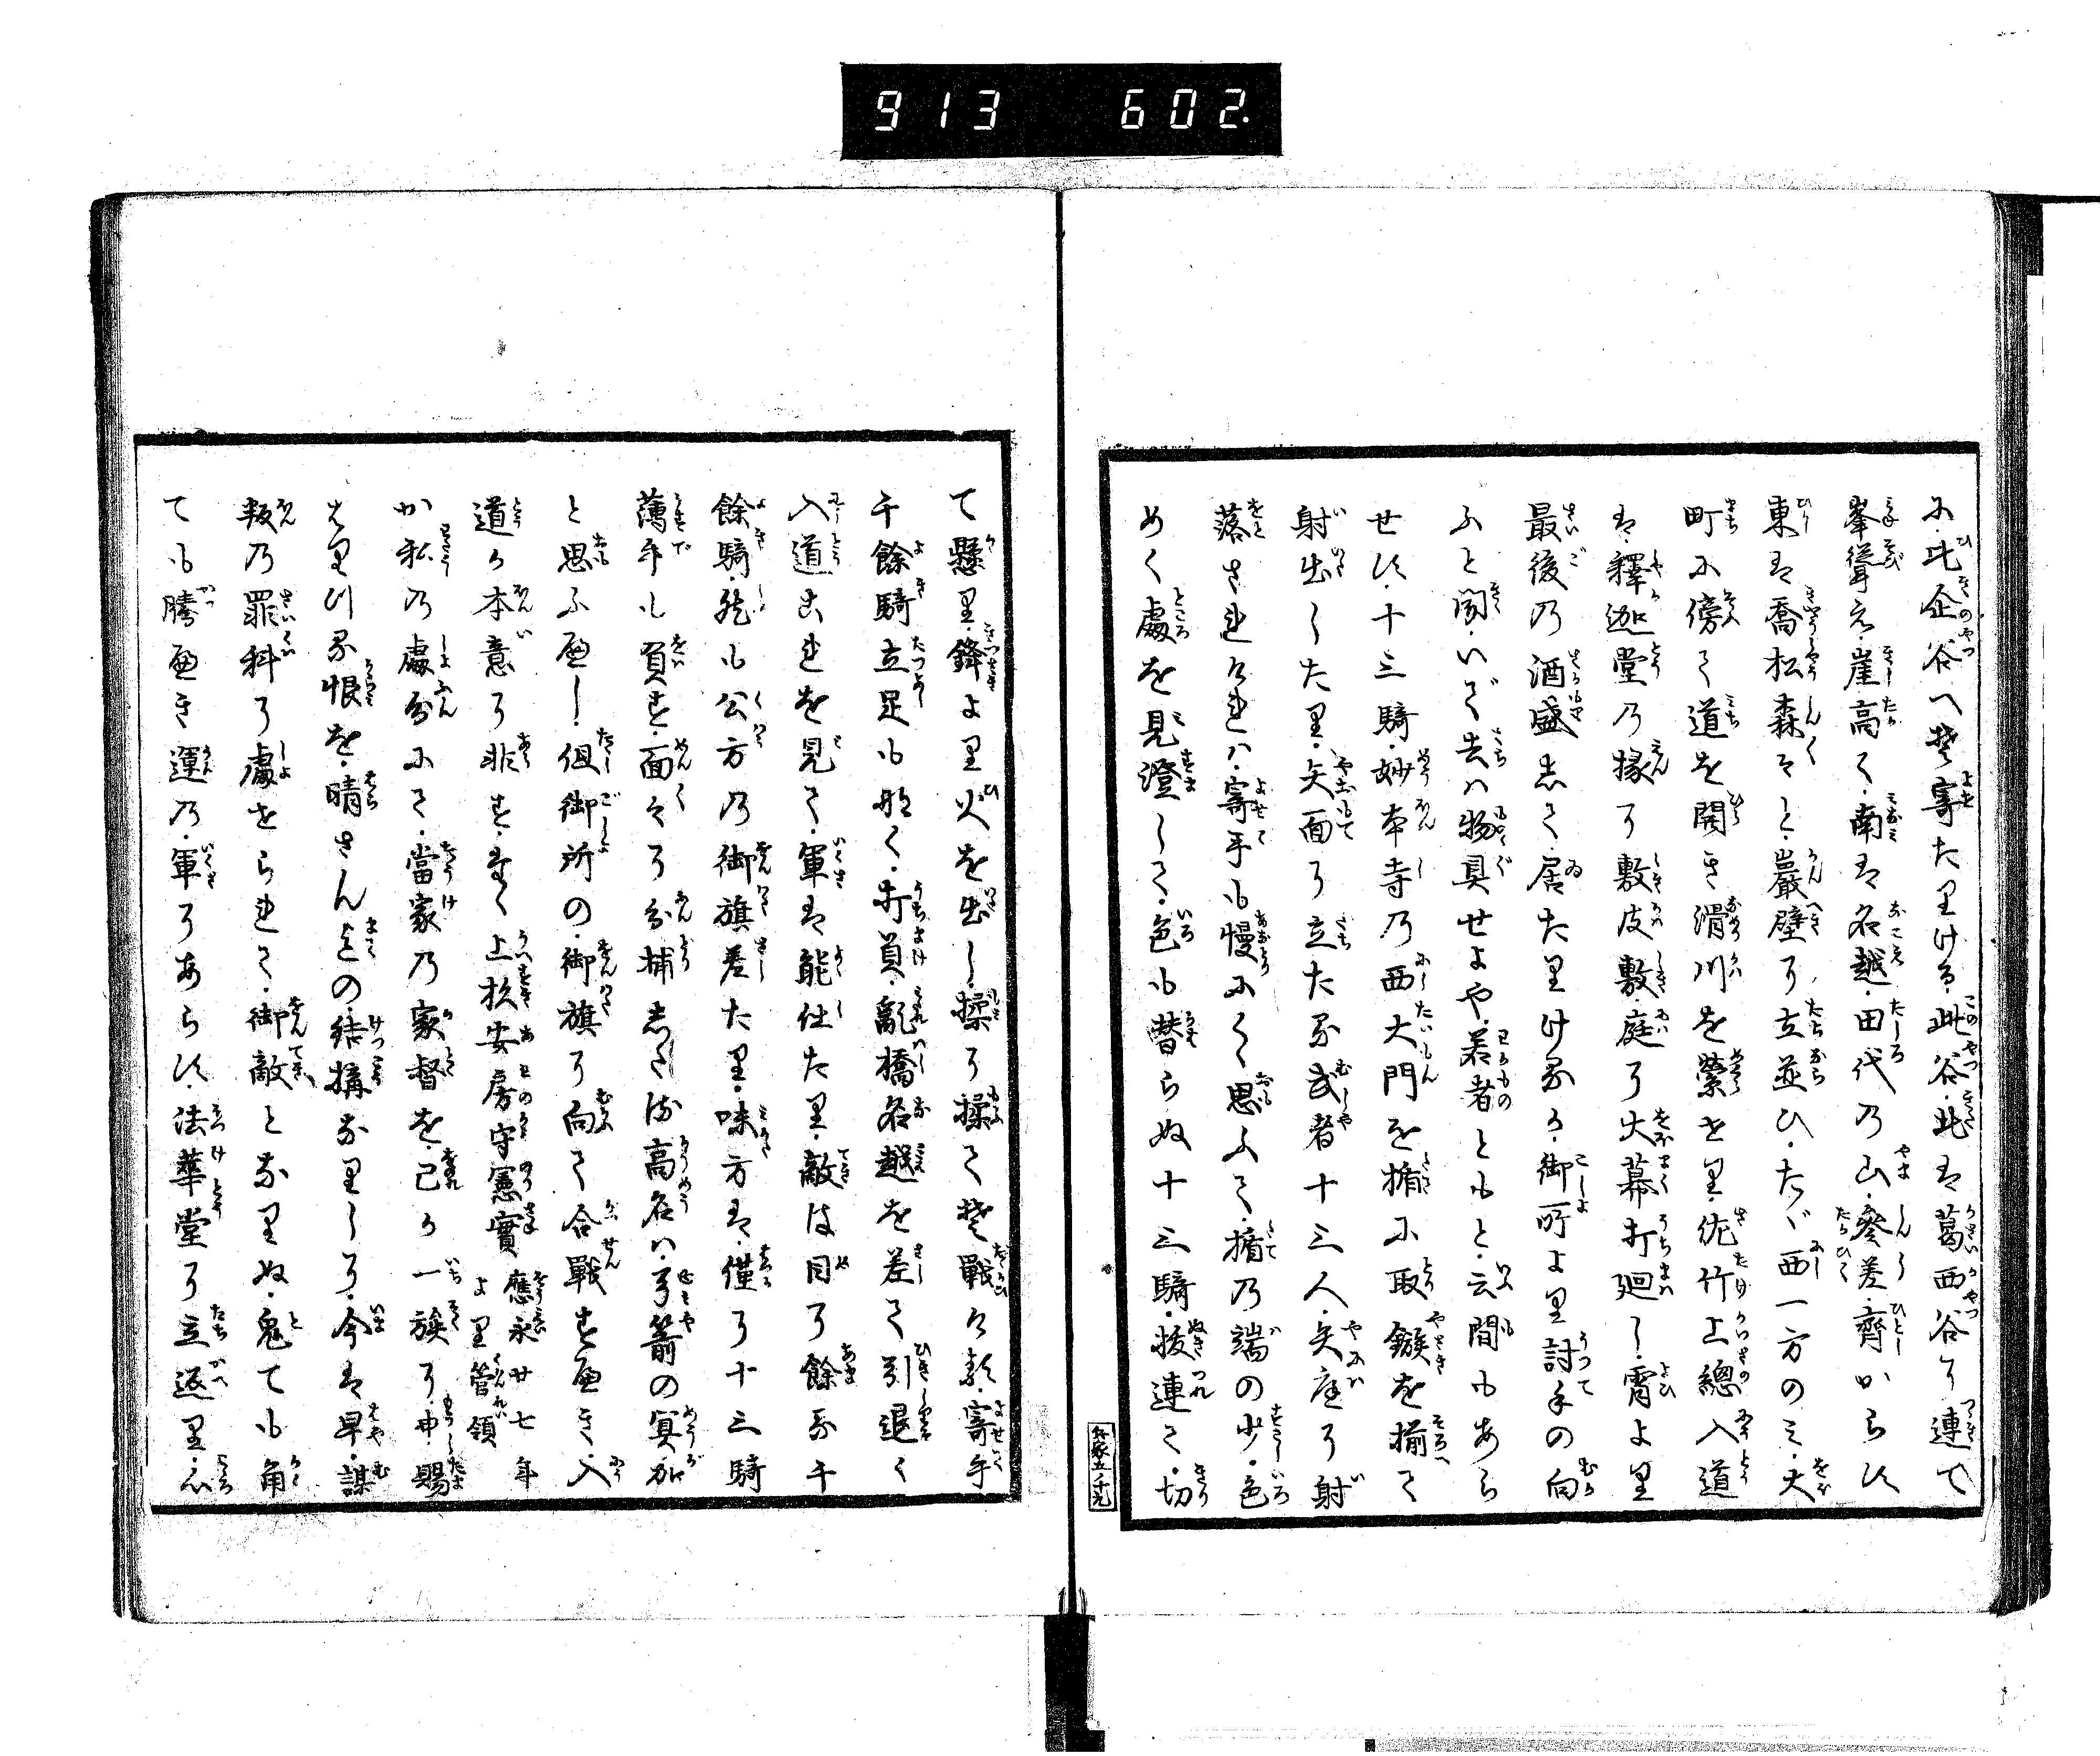 913 602.
に。比企谷へ楚寄たりける。此谷。北は葛西谷に連て
峯聳え。崖高く。南は名越。田代の山。參差。齊からず
東は喬松森々と。巖壁に立並ひ。たゞ西一方のミ。大
町に傍て道を開き。滑川を縈せり。佐竹上總入道
は。釋迦堂の椽に敷皮敷。庭に大幕打廻し。霄より
最後の酒盛して。居たりけるが。御所より討手の向
ふと聞。いざ去ハ物具せよや。若者ともと。云間もあら
せず。十三騎。妙本寺の西大門を楯に取。鏃を揃て
射出したり。矢面に立たる武者十三人。矢庭に射
落されけれハ。寄手も慢にくく思ふて。楯の端の少。色
めく處を見澄して。色も替らぬ十三騎。抜連て。切
て懸り。鋒より火を出し。揉に揉て楚戰ける。寄手
千餘騎立足も なく。打負。亂橋名越を差て引退く
入道これを見て。軍は能仕たり。敵は目に餘る千
餘騎。然も公方の御旗差たり。味方は。僅に十三騎
薄手も負ず。面々に分捕したる高名ハ。弓箭の冥加
と思ふべし。但御所の。御旗に向て合戰すべき。入
道が本意に非ず。豈く上杦安房守憲實 應永廿七年
より管領
か私の處分にて。當家の家督を。己が一族に。申賜
はりつる恨を。晴さん迚の。結搆なりしに。今は早。謀
叛の罪科に處せられて。御敵となりぬ。鬼ても角
ても勝べき運の。軍にあらず。法華堂に立返り。心